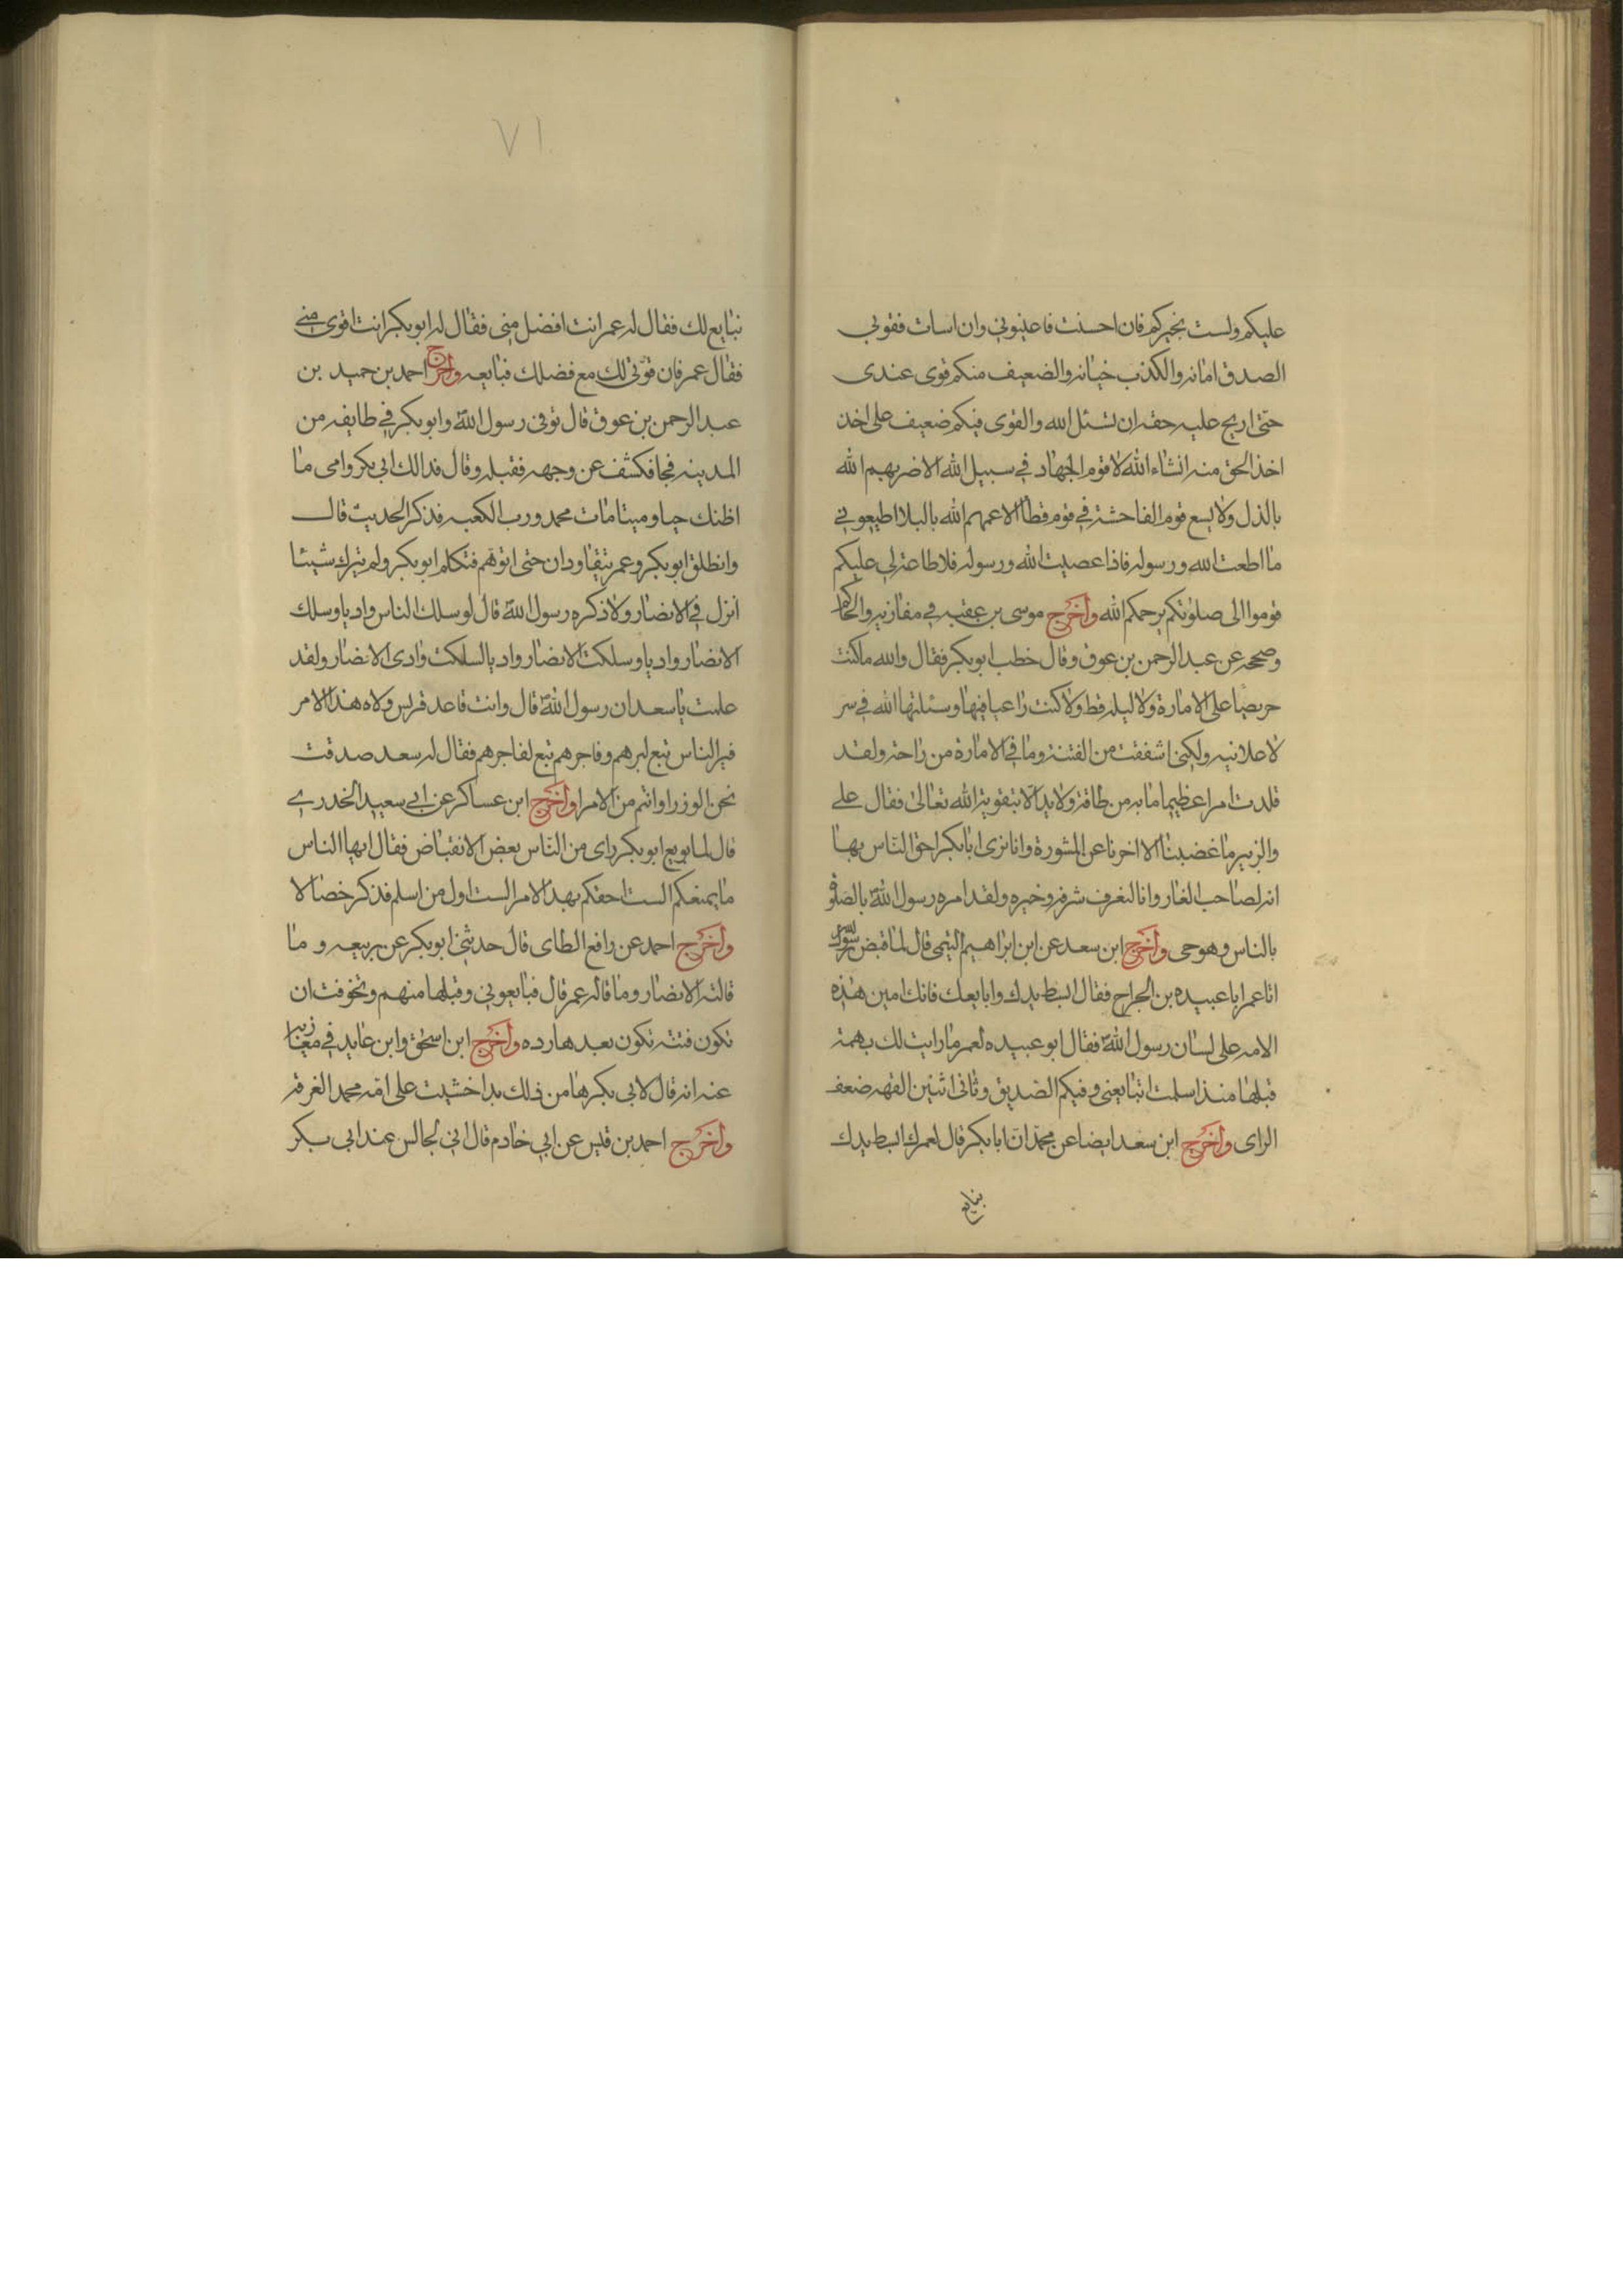 عليكم ولست بخيركم فان احسنت فاعينوني وان اسات فقوني
الصدق امانه والكذب خيانه والضعيف منكم قوى عندى
حتى اريح عليه حقه ان تسئل الله والقوى فيكم ضعيف على اخذ
اخذ الحق منه انشاء الله لا قوم الجهاد في سبيل الله الا ضربهم الله
بالذل ولا يسع قوم الفاحشة في قوم قط الا عمهم الله بالبلا اطيعوني
ما اطعت الله ورسوله فاذا عصيت الله ورسوله فلا طاعة لي عليكم
قوموا الى صلوتكم يرحمكم الله واخرج موسى بن عقبه في مغازيه والحاكم
وصححه عن عبد الرحمن بن عوف وقال خطب ابوبكر فقال والله ماكنت
حريصا على الامارة ولا ليله قط ولا كنت راغبا فيها وسئلتها الله في سر
لا علانيه ولكنى اشفقت من الفتنة وما في الامارة من راحة ولقد
قلدت امرا عظيما ما به من طاقة ولا يد الا بتقوية الله تعالى فقال على
والزبير ما غضبنا الا اخرنا عن المشورة وانا نرى ابابكر احق الناس بها
انه لصاحب الغار وانا لنعرف شرفه وخيره ولقد امره رسول الله بالصلوة
بالناس وهو حى واخرج ابن سعد عن ابن ابراهيم التيمى قال لما قبض رسول الله
اتا عمر ابا عبيده بن الجراح فقال ابسط يدك وابايعك فانك امين هذه
الامه على لسان رسول الله فقال ابو عبيده لعمر ما رايت لك بهمة
قبلها منذ اسلمت اتبايعنى وفيكم الصديق وثانى اثنين الفهه ضعف
الراى واخرج ابن سعد ايضا عن محمد ان ابابكر قال لعمر ابسط يدك
نبايع
٧١
نبايع لك فقال له عمر انت افضل منى فقال له ابوبكر انت اقوى منى
فقال عمر فان قوتى لك مع فضلك فبايعه واخرج احمد بن حميد بن
عبد الرحمن بن عوف قال توفى رسول الله وابوبكر في طايفه من
المدينه فجا فكشف عن وجهه فقبله وقال فدالك ابى وامى ما
اظنك حيا وميتا مات محمد ورب الكعبه فذكر الحديث قال
وانطلق ابوبكر وعمر يتقاودان حتى اتوهم فتكلم ابوبكر ولم يترك شيئا
انزل في الانصار ولا ذكره رسول الله قال لو سلك الناس واديا وسلك
الانصار واديا وسلكت الانصار واديا لسلكت وادى الانصار ولقد
علمت يا سعد ان رسول الله قال وانت قاعد قريش ولاه هذا الامر
فبر الناس تبع لبرهم وفاجرهم تبع لفاجرهم فقال له سعد صدقت
نحن الوزرا وانتم من الامرا واخرج ابن عساكر عن ابي سعيد الخدرى
قال لما بويع ابوبكر راى من الناس بعض الانقباض فقال ايها الناس
ما يمنعكم الست احقكم بهذا الامر الست اول من اسلم فذكر خصالا
واخرج احمد عن رافع الطاى قال حدثنى ابوبكر عن بيعه وما
قالته الانصار وما قاله عمر قال فبايعونى وقبلها منهم وتخوفت ان
تكون فتنه تكون بعدها رده واخرج ابن اسحق وابن عايد في مغازيه
عنه انه قال لابى بكر من ذلك بدا خشيت على امه محمد الفرقة
واخرج احمد بن قيس عن ابى خادم قال انى لجالس عند ابى بكر